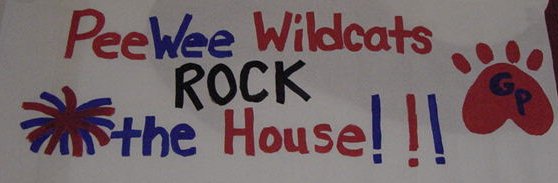 PeeWee Wildcats
ROCK
the House!!!
GP